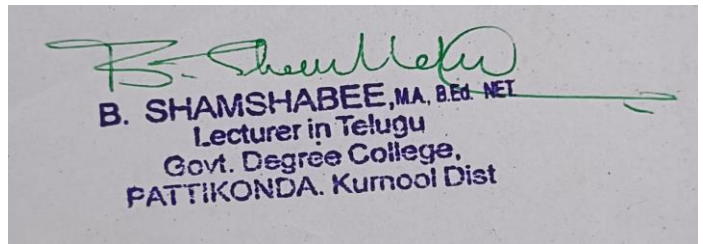 B. SHAMSHABEE, MA, B.Ed. NET
Lecturer in Telugu
Govt. Degree College,
PATTIKONDA. Kurnool Dist